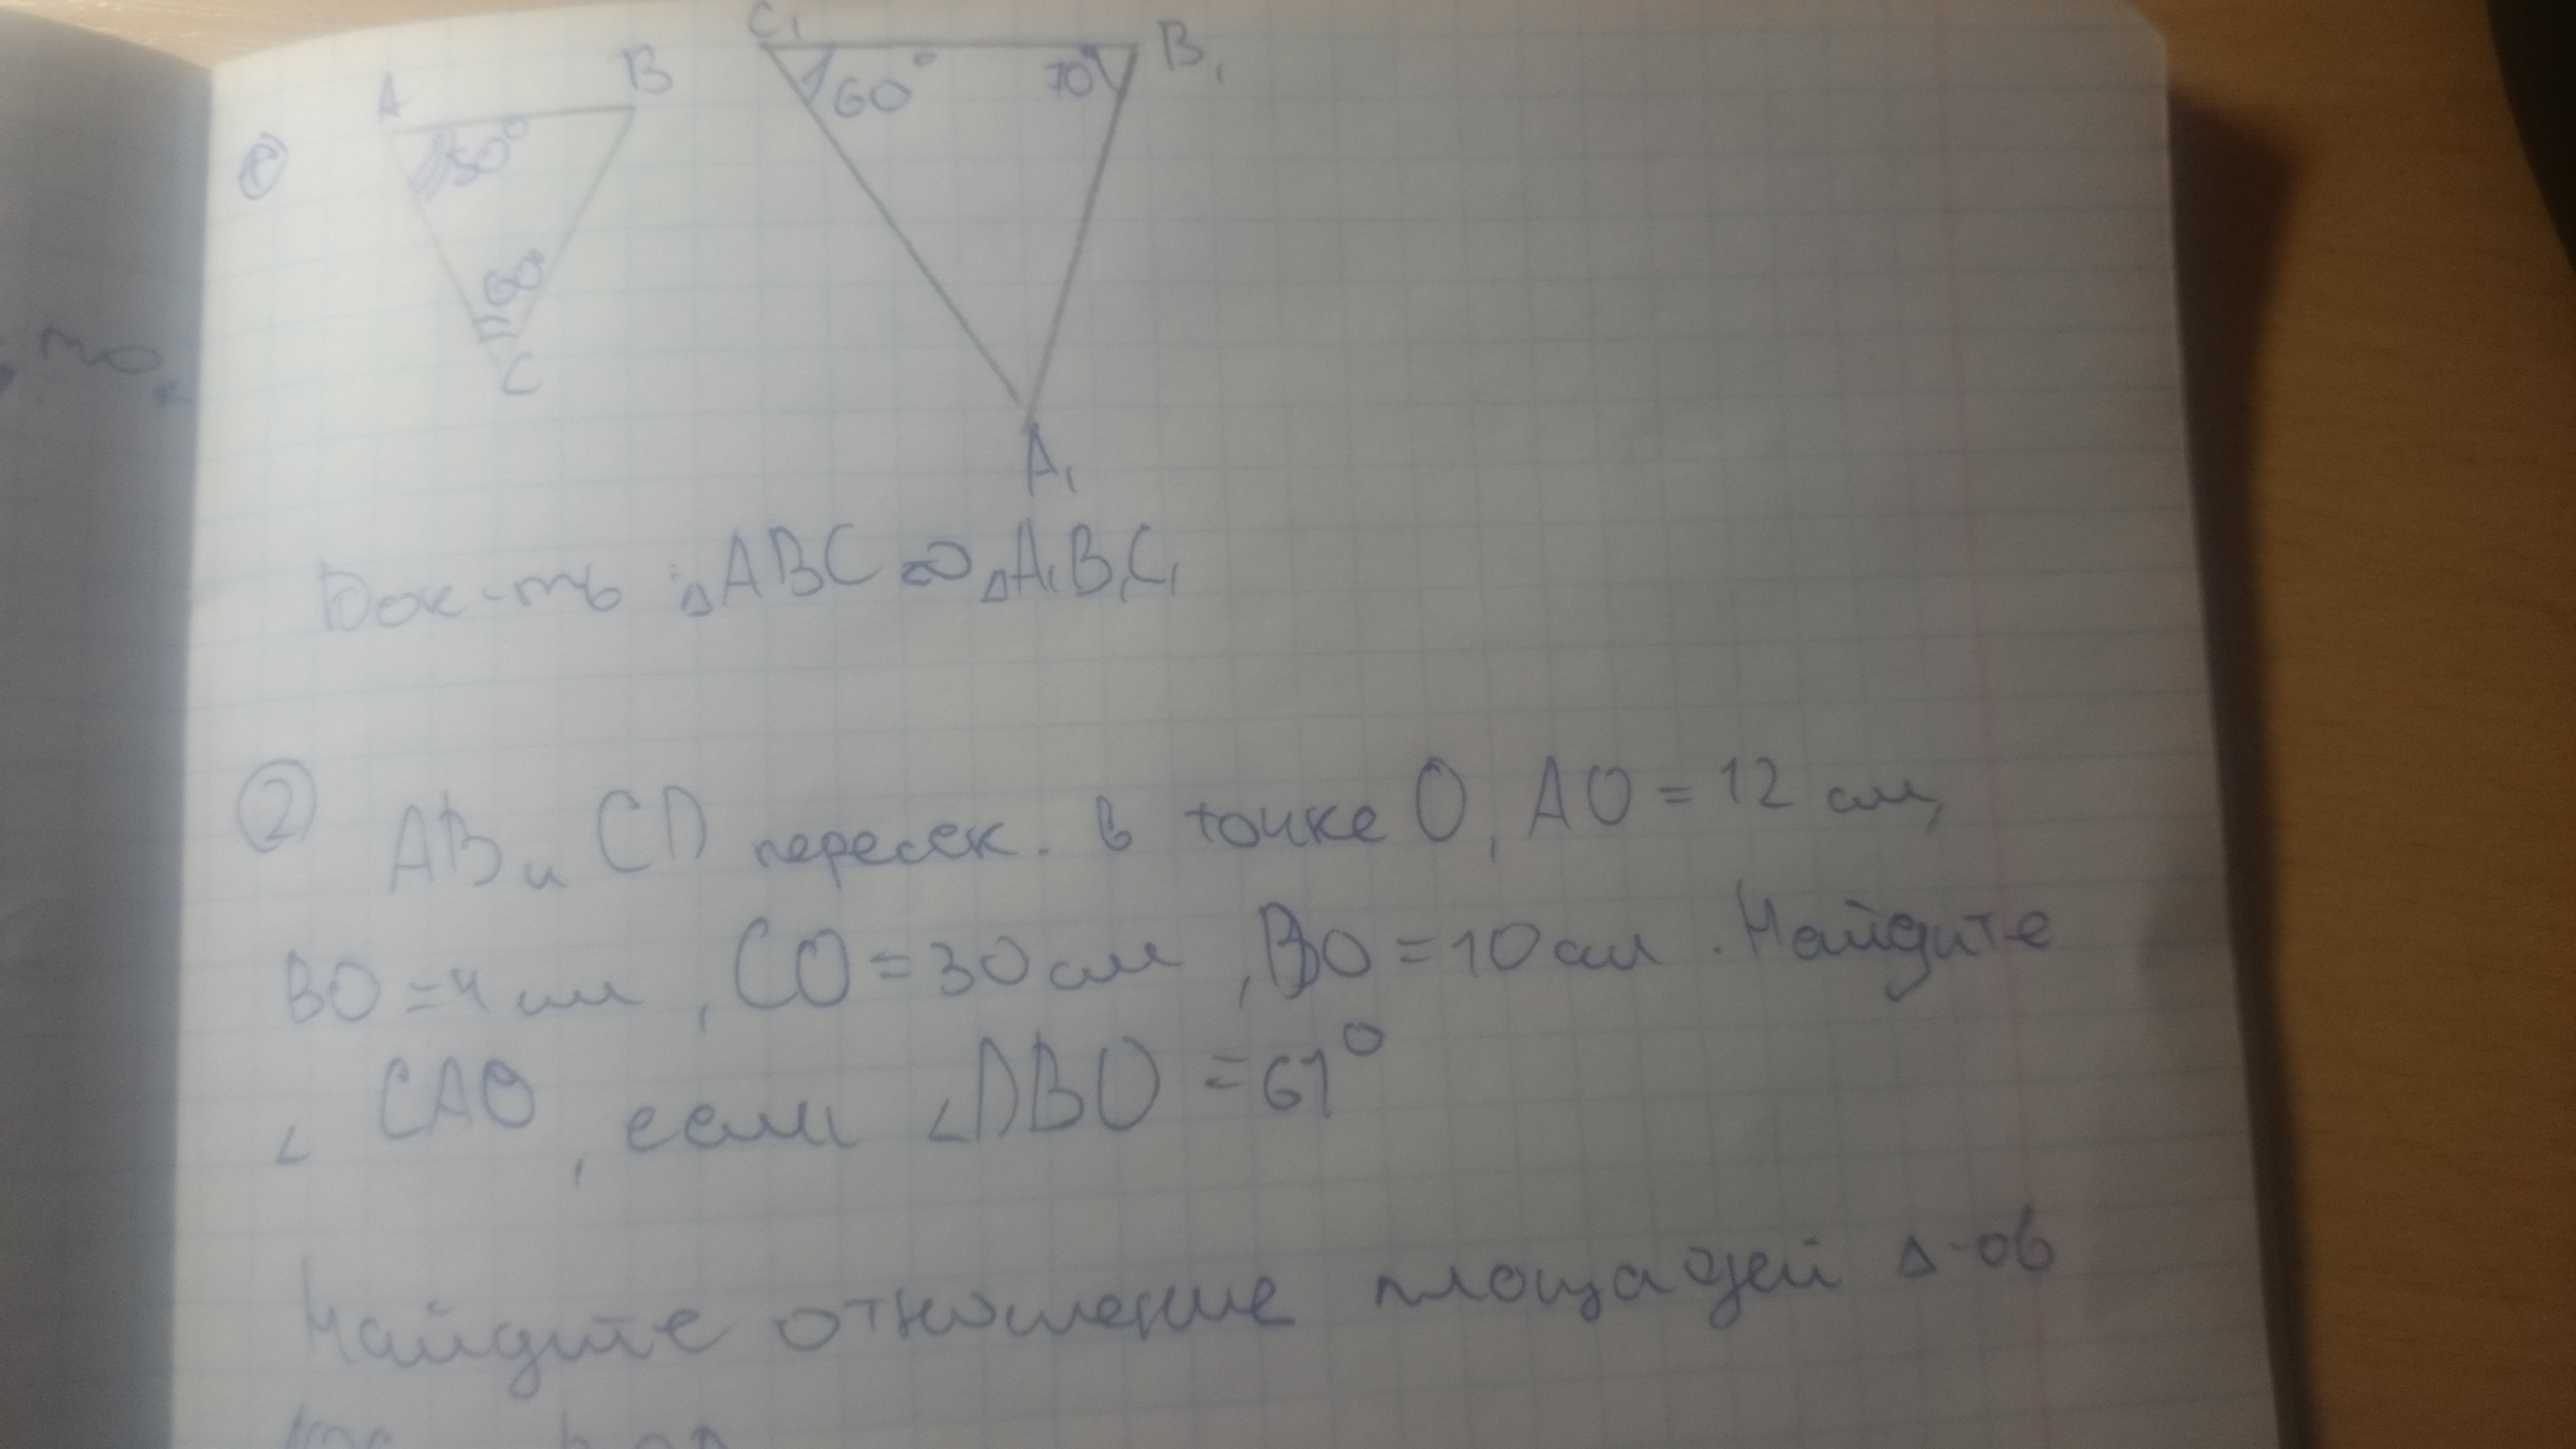 ①
A
B
50°
60°
C
C₁
60°
70°
B₁
A₁
то
Док-ть: △ABC ∾ △A₁B₁C₁
② AB и CD пересек. в точке O, AO = 12 см,
BO = 4 см, CO = 30 см, DO = 10 см. Найдите
∠ CAO, если ∠DBO = 61°
Найдите отношение площадей △-ов